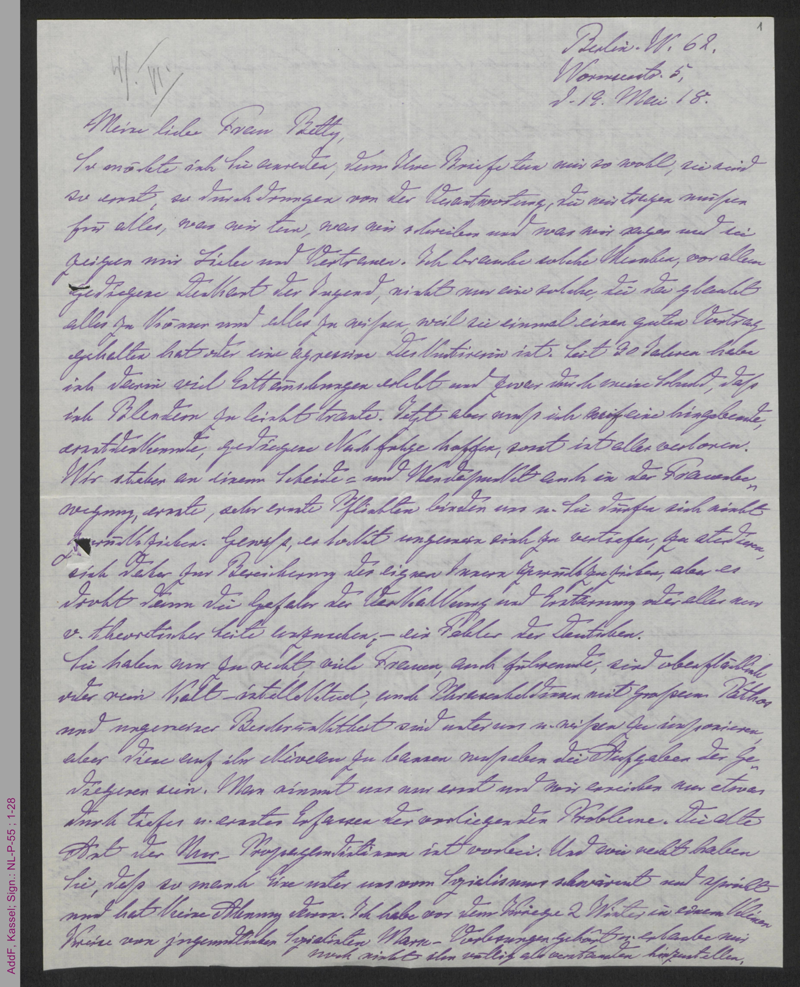 1
41. VI.
Berlin. W. 62.
Wormserstr. 5,
d. 19. Mai 18.
Meine liebe Frau Betty,
So möchte ich Sie anreden, denn Ihre Briefe tun mir so wohl, sie sind
so ernst, so durchdrungen von der Verantwortung, die wir tragen müssen
für alles, was wir tun, was wir schreiben und was wir sagen und sie
zeigen mir Liebe und Vertrauen. Ich brauche solche Menschen, vor allem
gediegene Denkart der Jugend, nicht nur eine solche, die da glaubt
alles zu können und alles zu wissen, weil sie einmal einen guten Vortrag
gehalten hat oder eine agressive ist. Seit 30 Jahren habe
ich darin viel Enttäuschungen erlebt und zwar durch meine Schuld, daß
ich Blendern zu leicht traute. Jetzt aber muß ich auf eine hingebende,
ernstdenkende, gediegene Nachfolge hoffen, sonst ist alles verloren.
Wir stehen an einem Scheide= und Wendepunkt auch in der Frauenbe-
wegung, ernste, sehr ernste Pflichten binden uns u. Sie dürfen sich nicht
zurückziehen. Gewiß, es lockt ungemein sich zu vertiefen, zu studieren,
sich daher zur Bereicherung des eignen Innern zurückzuziehen, aber es
droht dann die Gefahr der Verkalkung und Erstarrung oder alles nur
v. theoretischer Seite anzusehen, – ein Fehler der Deutschen.
Sie haben nur zu recht viele Frauen, auch führende, sind oberflächlich
oder rein kalt-intellektuel, auch Phrasenheldinnen mit großem Pathos
und ungemeiner Beschränktheit sind unter uns u. wissen zu imponieren,
aber diese auf ihr Niveau zu bannen muß eben die Aufgabe der Ge-
diegenen sein. Man nimmt uns nur ernst und wir erreichen nur etwas
durch tiefes u. ernstes Erfassen der vorliegenden Probleme. Die alte
Art der Nur-Propagandistinnen ist vorbei. Und wie recht haben
Sie, daß so manch Eine unter uns vom Sozialismus schwärmt und spricht
und hat keine Ahnung davon. Ich habe vor dem Kriege 2 Winter in einem kleinen
Kreise von jugendlichen Sozialisten Marx-Vorlesungen gehört u. erlaube mir
noch nicht ihn völlig als verstanden hinzustellen,
AddF, Kassel; Sign.: NL-P-55 ; 1-28